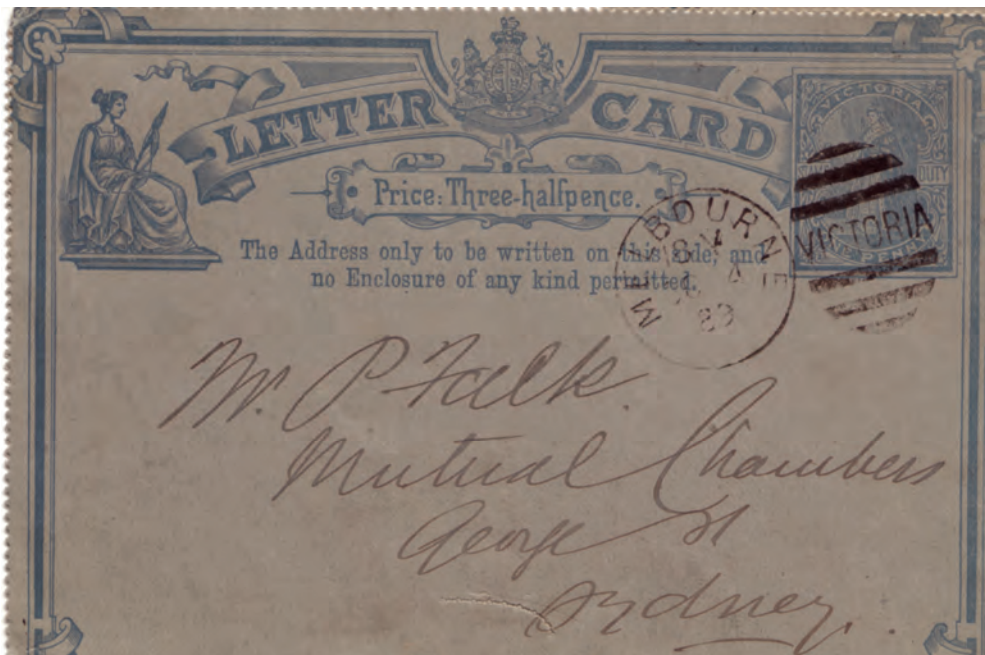 LETTER CARD
VICTORIA
DUTY
Price: Three-halfpence.
The Address only to be written on this side, and
no Enclosure of any kind permitted.
MELBOURNE
89
VICTORIA
Mr. P Falk.
Mutual Chambers
George St
Sydney.